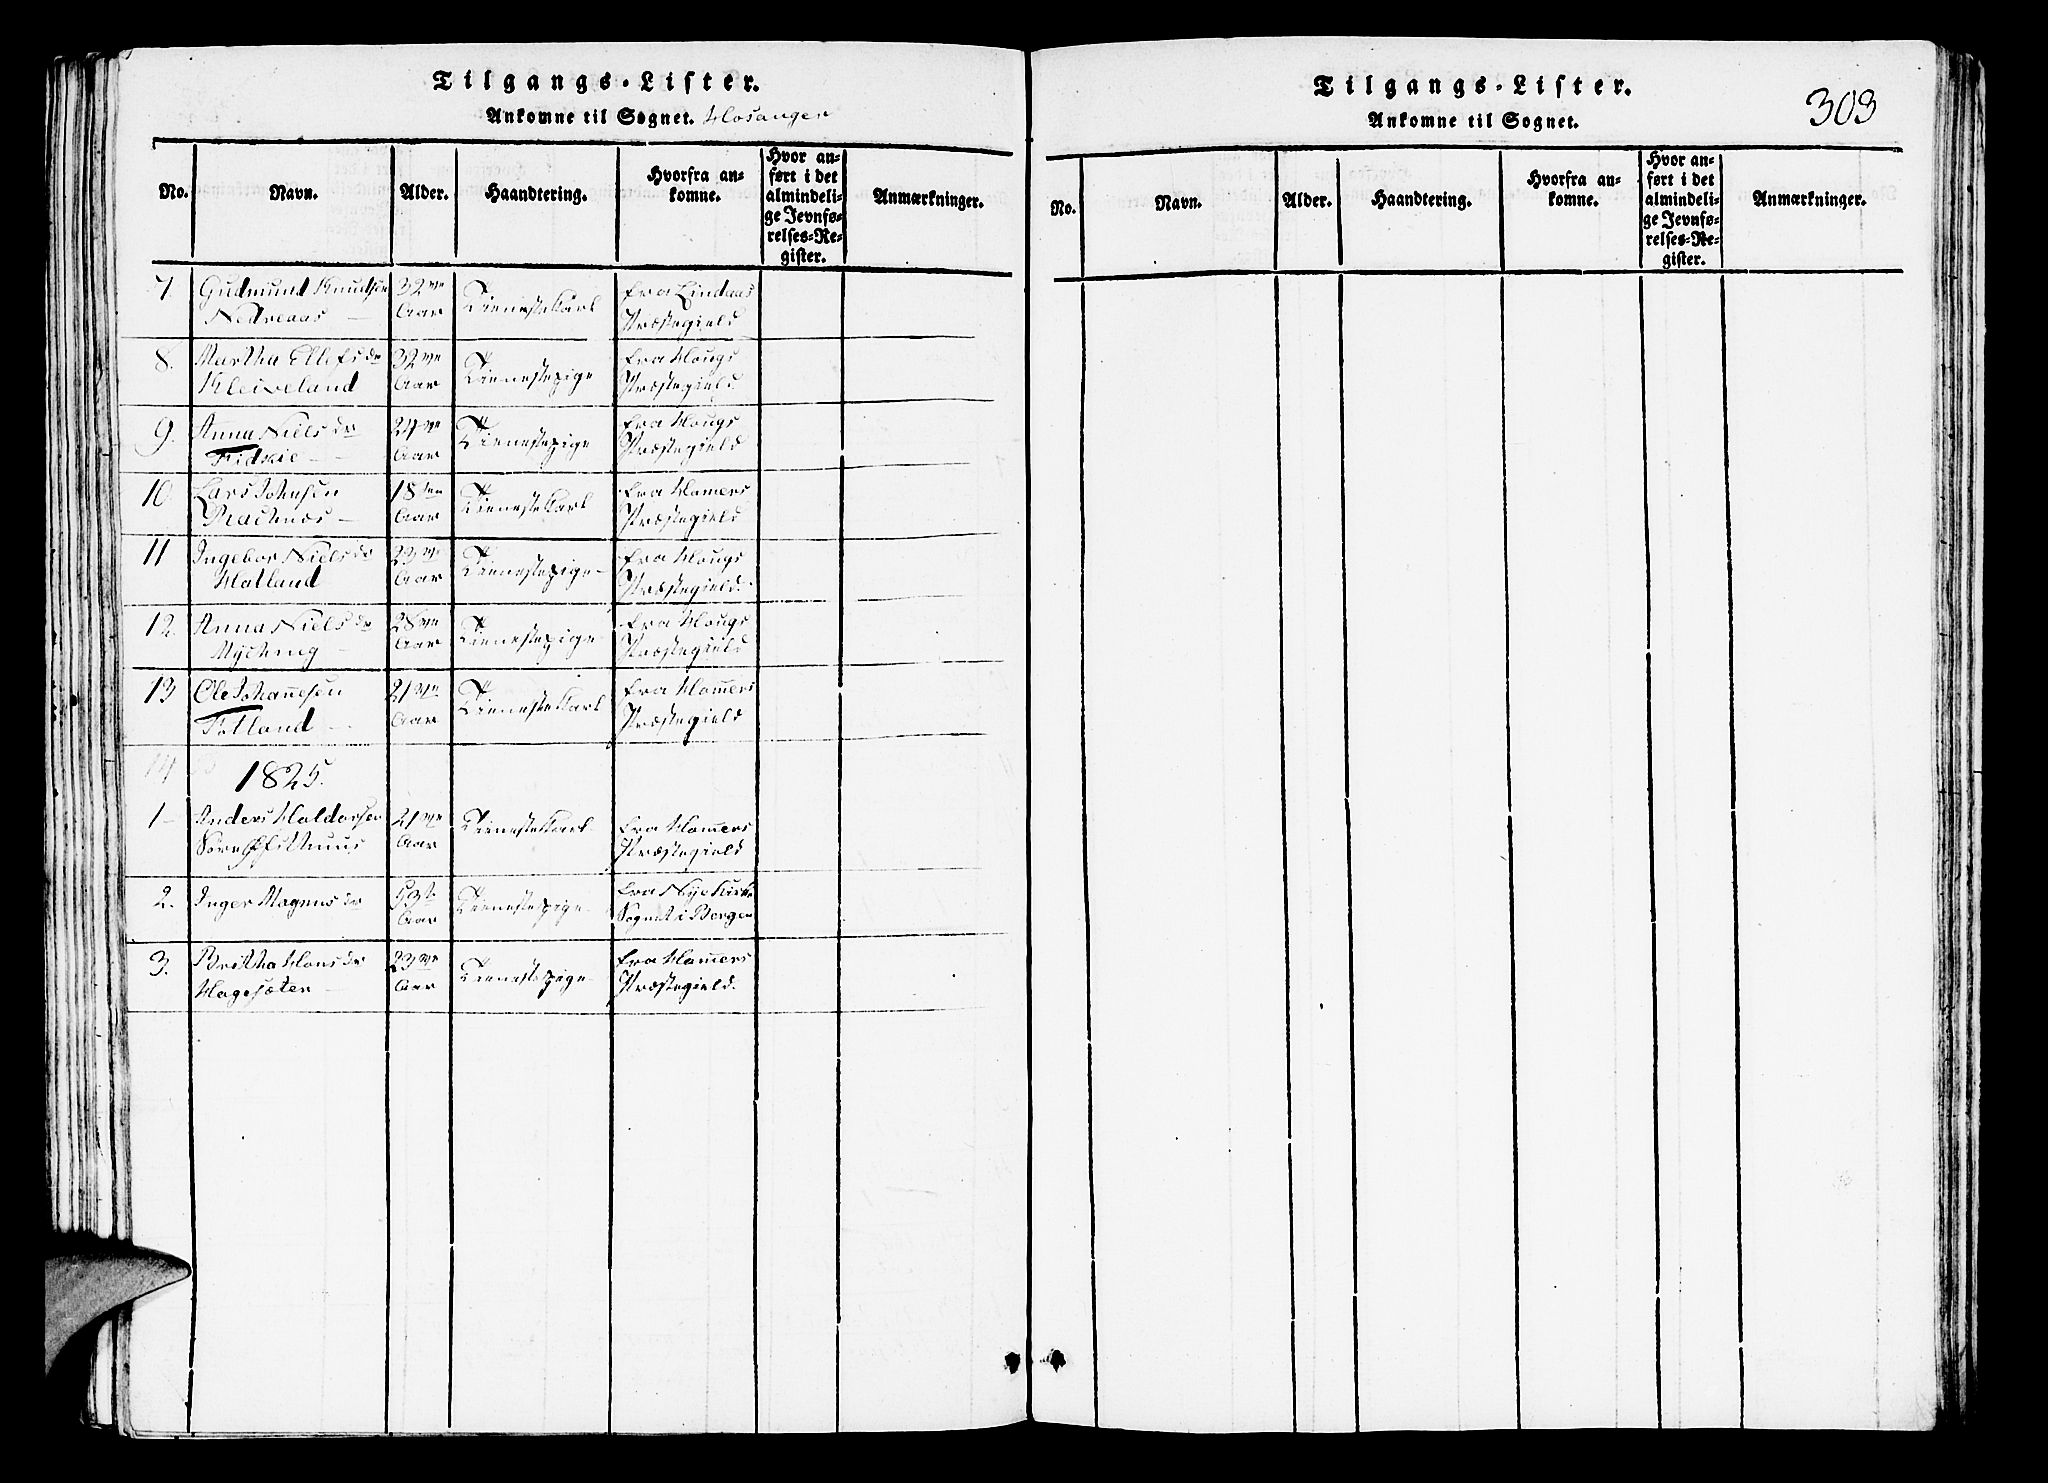 Tilgangs-Lister.
Ankomne til Sognet. Hosanger
No. Navn. Alder. Haandtering. Hvorfra ankomne. Hvor anført i det almindelige Jevnførelses-Register. Anmærkninger.
7. Gudmund Knudsen 32 Aar Tieneste Karl fra Lindaas Præstegield
Nedreaas
8. Martha Ellefs dr 32 Aar Tienestepige fra Houg Præstegield
Kleiveland
9. Anna Niels dr 24 Aar Tienestepige fra Hougs Præstegield
Fidskie
10. Lars Johnsen 18 Aar Tieneste Karl fra Hamers Præstegield
11 Ingebor Niels dr 23 Aar Tienestepige fra Hougs Præstegield.
Hatland
12. Anna Niels dr 28 Aar Tienestepige fra Hougs Præstegield
Myching
13 Ole Johannesen 21 Aar Tieneste Karl fra Hamers Præstegield
Fotland
14
1825.
1 Anders Haldorsen 21 Aar Tieneste Karl fra Hamers Præstegield
2. Inger Magnus dr 53 Aar Tienestepige fra Nye Kirke Sognet i Bergen
3. Britha Hans dr 23 Aar Tienestepige fra Hamers Præstegield.
Hagesæter
Tilgangs-Lister.
Ankomne til Sognet.
303
No. Navn. Alder. Haandtering. Hvorfra ankomne. Hvor anført i det almindelige Jevnførelses-Register. Anmærkninger.